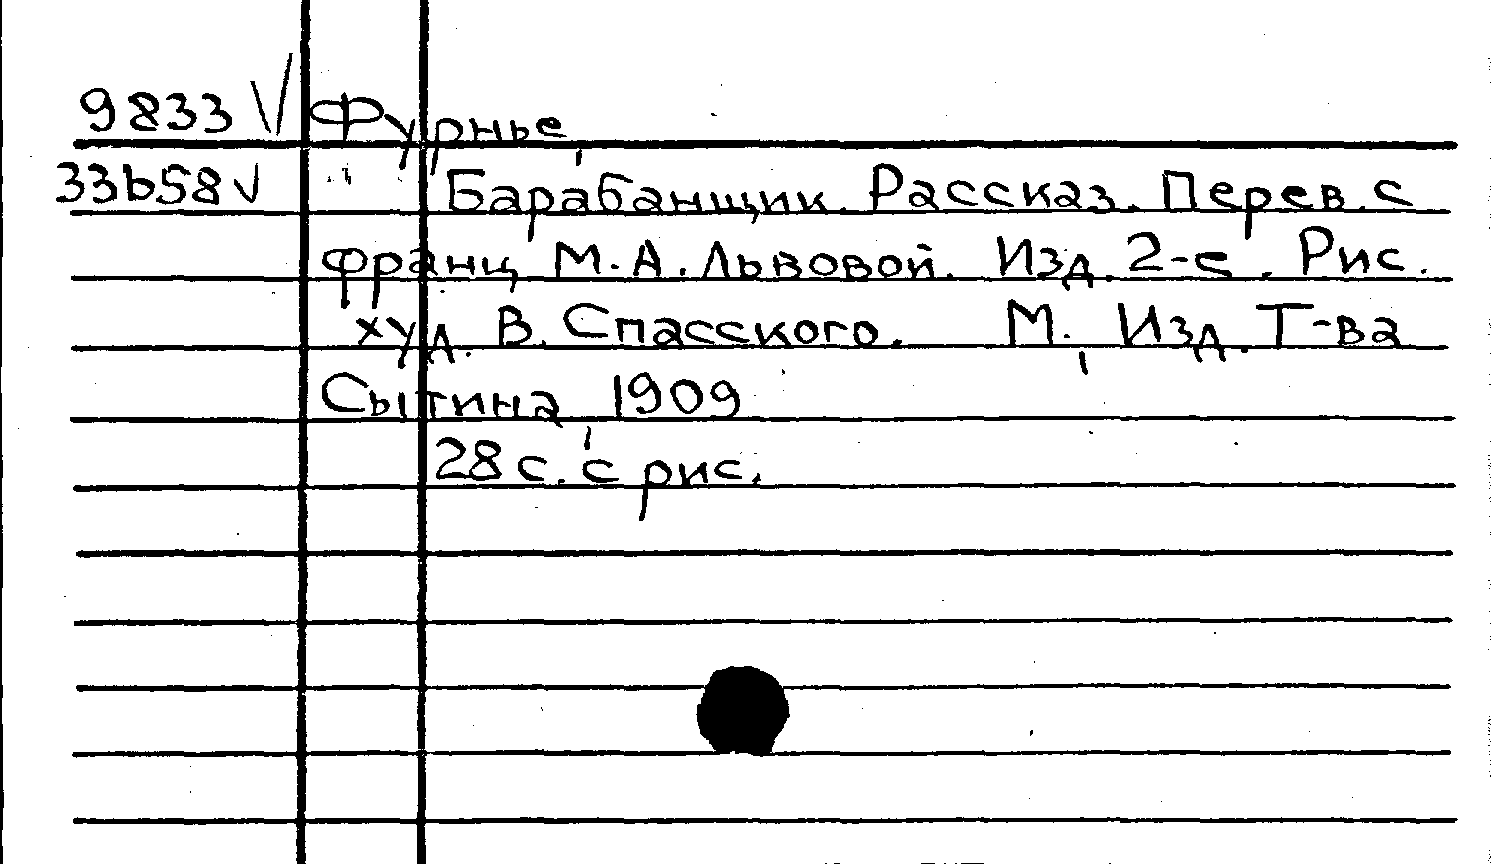 9833 √ Фурнье,
33b58 √ Барабанщик. Рассказ. Перев. с
франц. М.А. Львовой. Изд. 2-е. Рис.
худ. В. Спасского. М., Изд. Т-ва
Сытина, 1909
28 с. с рис.